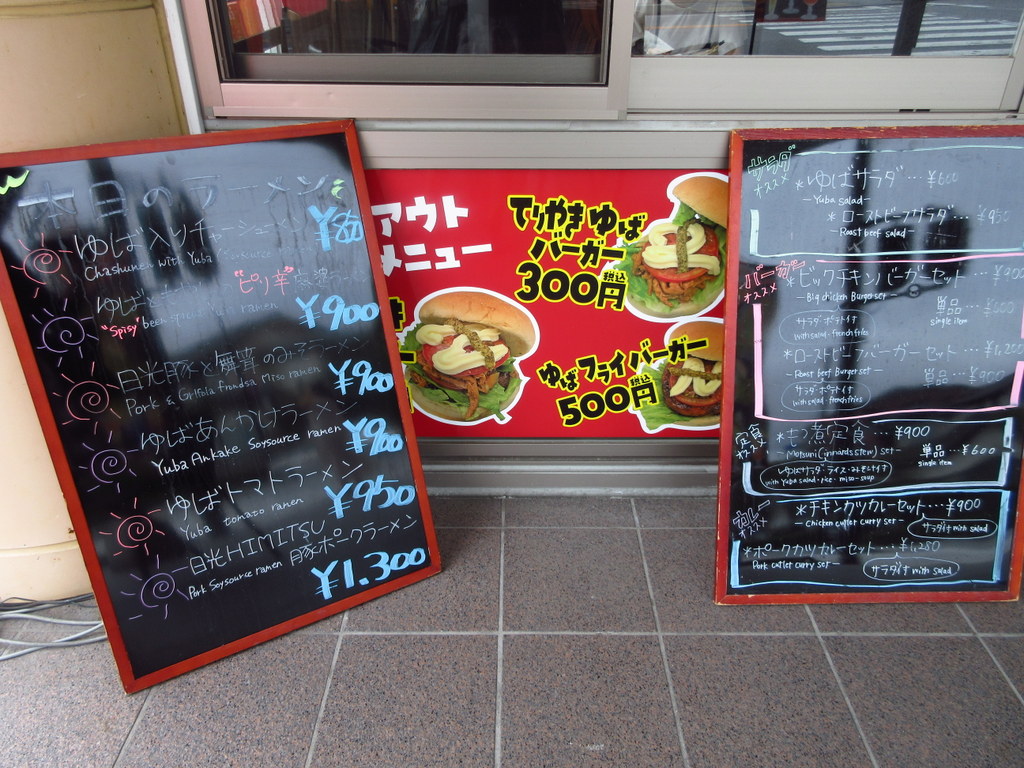 本日のラーメン
ゆば入りチャーシューメン
Chashumen with Yuba
ゆば
"ピリ辛"
¥900
"Spisy" ramen
日光豚と舞茸のみそラーメン
Pork & Grifola frondsa Miso ramen
¥900
ゆばあんかけラーメン
Yuba Ankake Soysource ramen
¥900
ゆばトマトラーメン
Yuba tomato ramen
¥950
日光HIMITSU豚ポークラーメン
Pork Soysource ramen
¥1.300
アウト
メニュー
てりやきゆば
バーガー
300円税込
ゆばフライバーガー
500円税込
サラダ
オススメ
*ゆばサラダ…¥600
-Yuba salad-
*ローストビーフサラダ…¥950
-Roast beef salad-
バーガー
オススメ
*ビックチキンバーガーセット
-Big chicken Burger set-
単品
single item
サラダ・ポテト付
with salad・french fries
*ローストビーフバーガーセット ¥1,200
-Roast beef Burger set-
単品
サラダ・ポテト付
with salad・french fries
定食
オススメ
*もつ煮定食…¥900
-Motsuni (innards stew) set-
単品…¥600
single item
ゆばサラダ・ライス・みそしる付
with Yuba salad・rice・miso-soup
カレー
オススメ
*チキンカツカレーセット…¥900
-Chicken cutlet curry set-
サラダ付 with salad
*ポークカツカレーセット…¥1,280
Pork cutlet curry set-
サラダ付 with salad